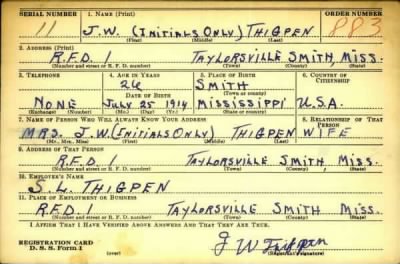 SERIAL NUMBER 1. NAME (Print) ORDER NUMBER
11 J.W. (INITIALS ONLY) THIGPEN 883
(First) (Middle) (Last)
2. ADDRESS (Print)
R.F.D. 1 TAYLORSVILLE SMITH MISS.
(Number and street or R. F. D. number) (Town) (County) (State)
3. TELEPHONE 4. AGE IN YEARS 5. PLACE OF BIRTH 6. COUNTRY OF CITIZENSHIP
26 SMITH
DATE OF BIRTH (Town or county)
NONE JULY 25 1914 MISSISSIPPI U.S.A.
(Exchange) (Number) (Mo.) (Day) (Yr.) (State or country)
7. NAME OF PERSON WHO WILL ALWAYS KNOW YOUR ADDRESS 8. RELATIONSHIP OF THAT PERSON
MRS. J.W. (INITIALS ONLY) THIGPEN WIFE
(Mr., Mrs., Miss) (First) (Middle) (Last)
9. ADDRESS OF THAT PERSON
R.F.D. 1 TAYLORSVILLE SMITH MISS.
(Number and street or R. F. D. number) (Town) (County) (State)
10. EMPLOYER'S NAME
S.L. THIGPEN
11. PLACE OF EMPLOYMENT OR BUSINESS
R.F.D. 1 TAYLORSVILLE SMITH MISS.
(Number and street or R. F. D. number) (Town) (County) (State)
I AFFIRM THAT I HAVE VERIFIED ABOVE ANSWERS AND THAT THEY ARE TRUE.
REGISTRATION CARD
D. S. S. Form 1
J W Thigpen
(Registrant's signature)